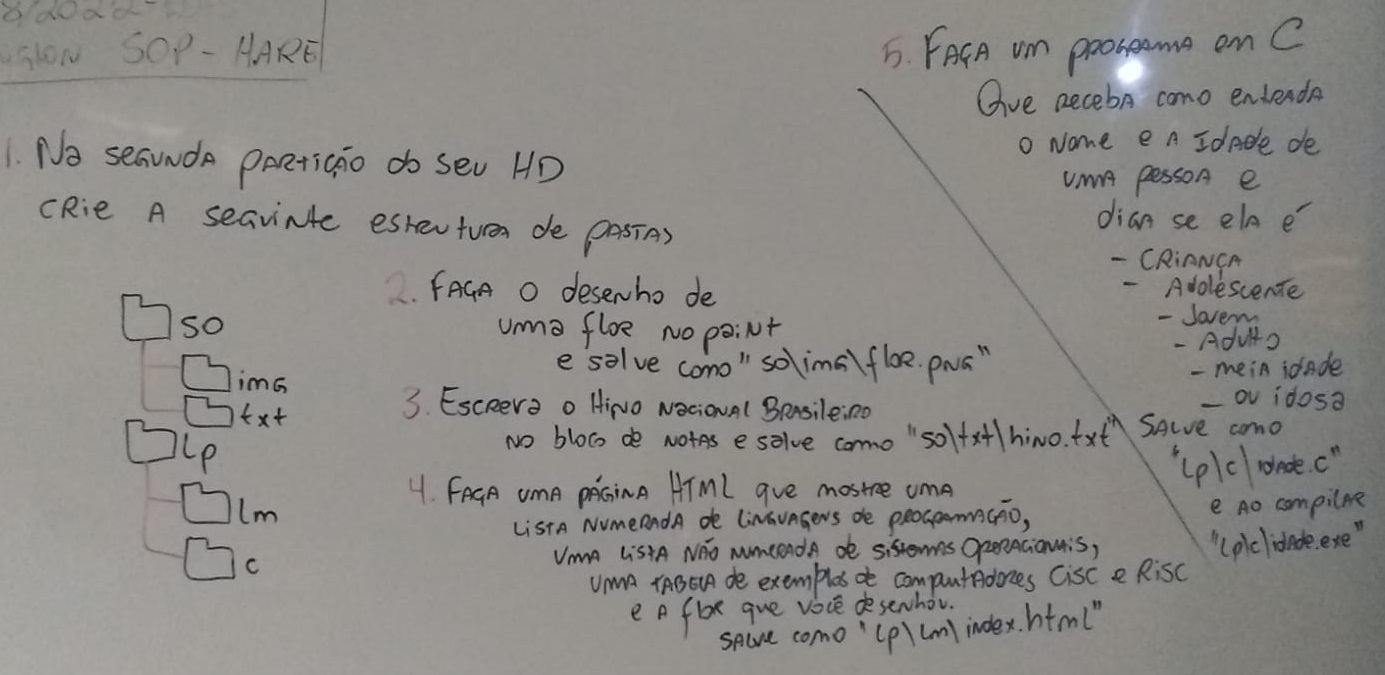 8/2022
SOP - HARE
1. Na segunda partição do seu HD
crie a seguinte estrutura de pastas
so
img
txt
lp
lm
c
2. Faça o desenho de
uma flor no paint
e salve como "so\img\flor.png"
3. Escreva o Hino Nacional Brasileiro
no bloco de notas e salve como "so\txt\hino.txt"
4. Faça uma página HTML que mostre uma
lista numerada de linguagens de programação,
uma lista não numerada de sistemas operacionais,
uma tabela de exemplos de computadores CISC e RISC
e a flor que você desenhou.
Salve como "lp\lm\index.html"
5. Faça um programa em C
Que receba como entrada
o nome e a idade de
uma pessoa e
diga se ela é
- CRIANÇA
- Adolescente
- Jovem
- Adulto
- meia idade
- ou idosa
Salve como
"lp\c\idade.c"
e ao compilar
"lp\c\idade.exe"